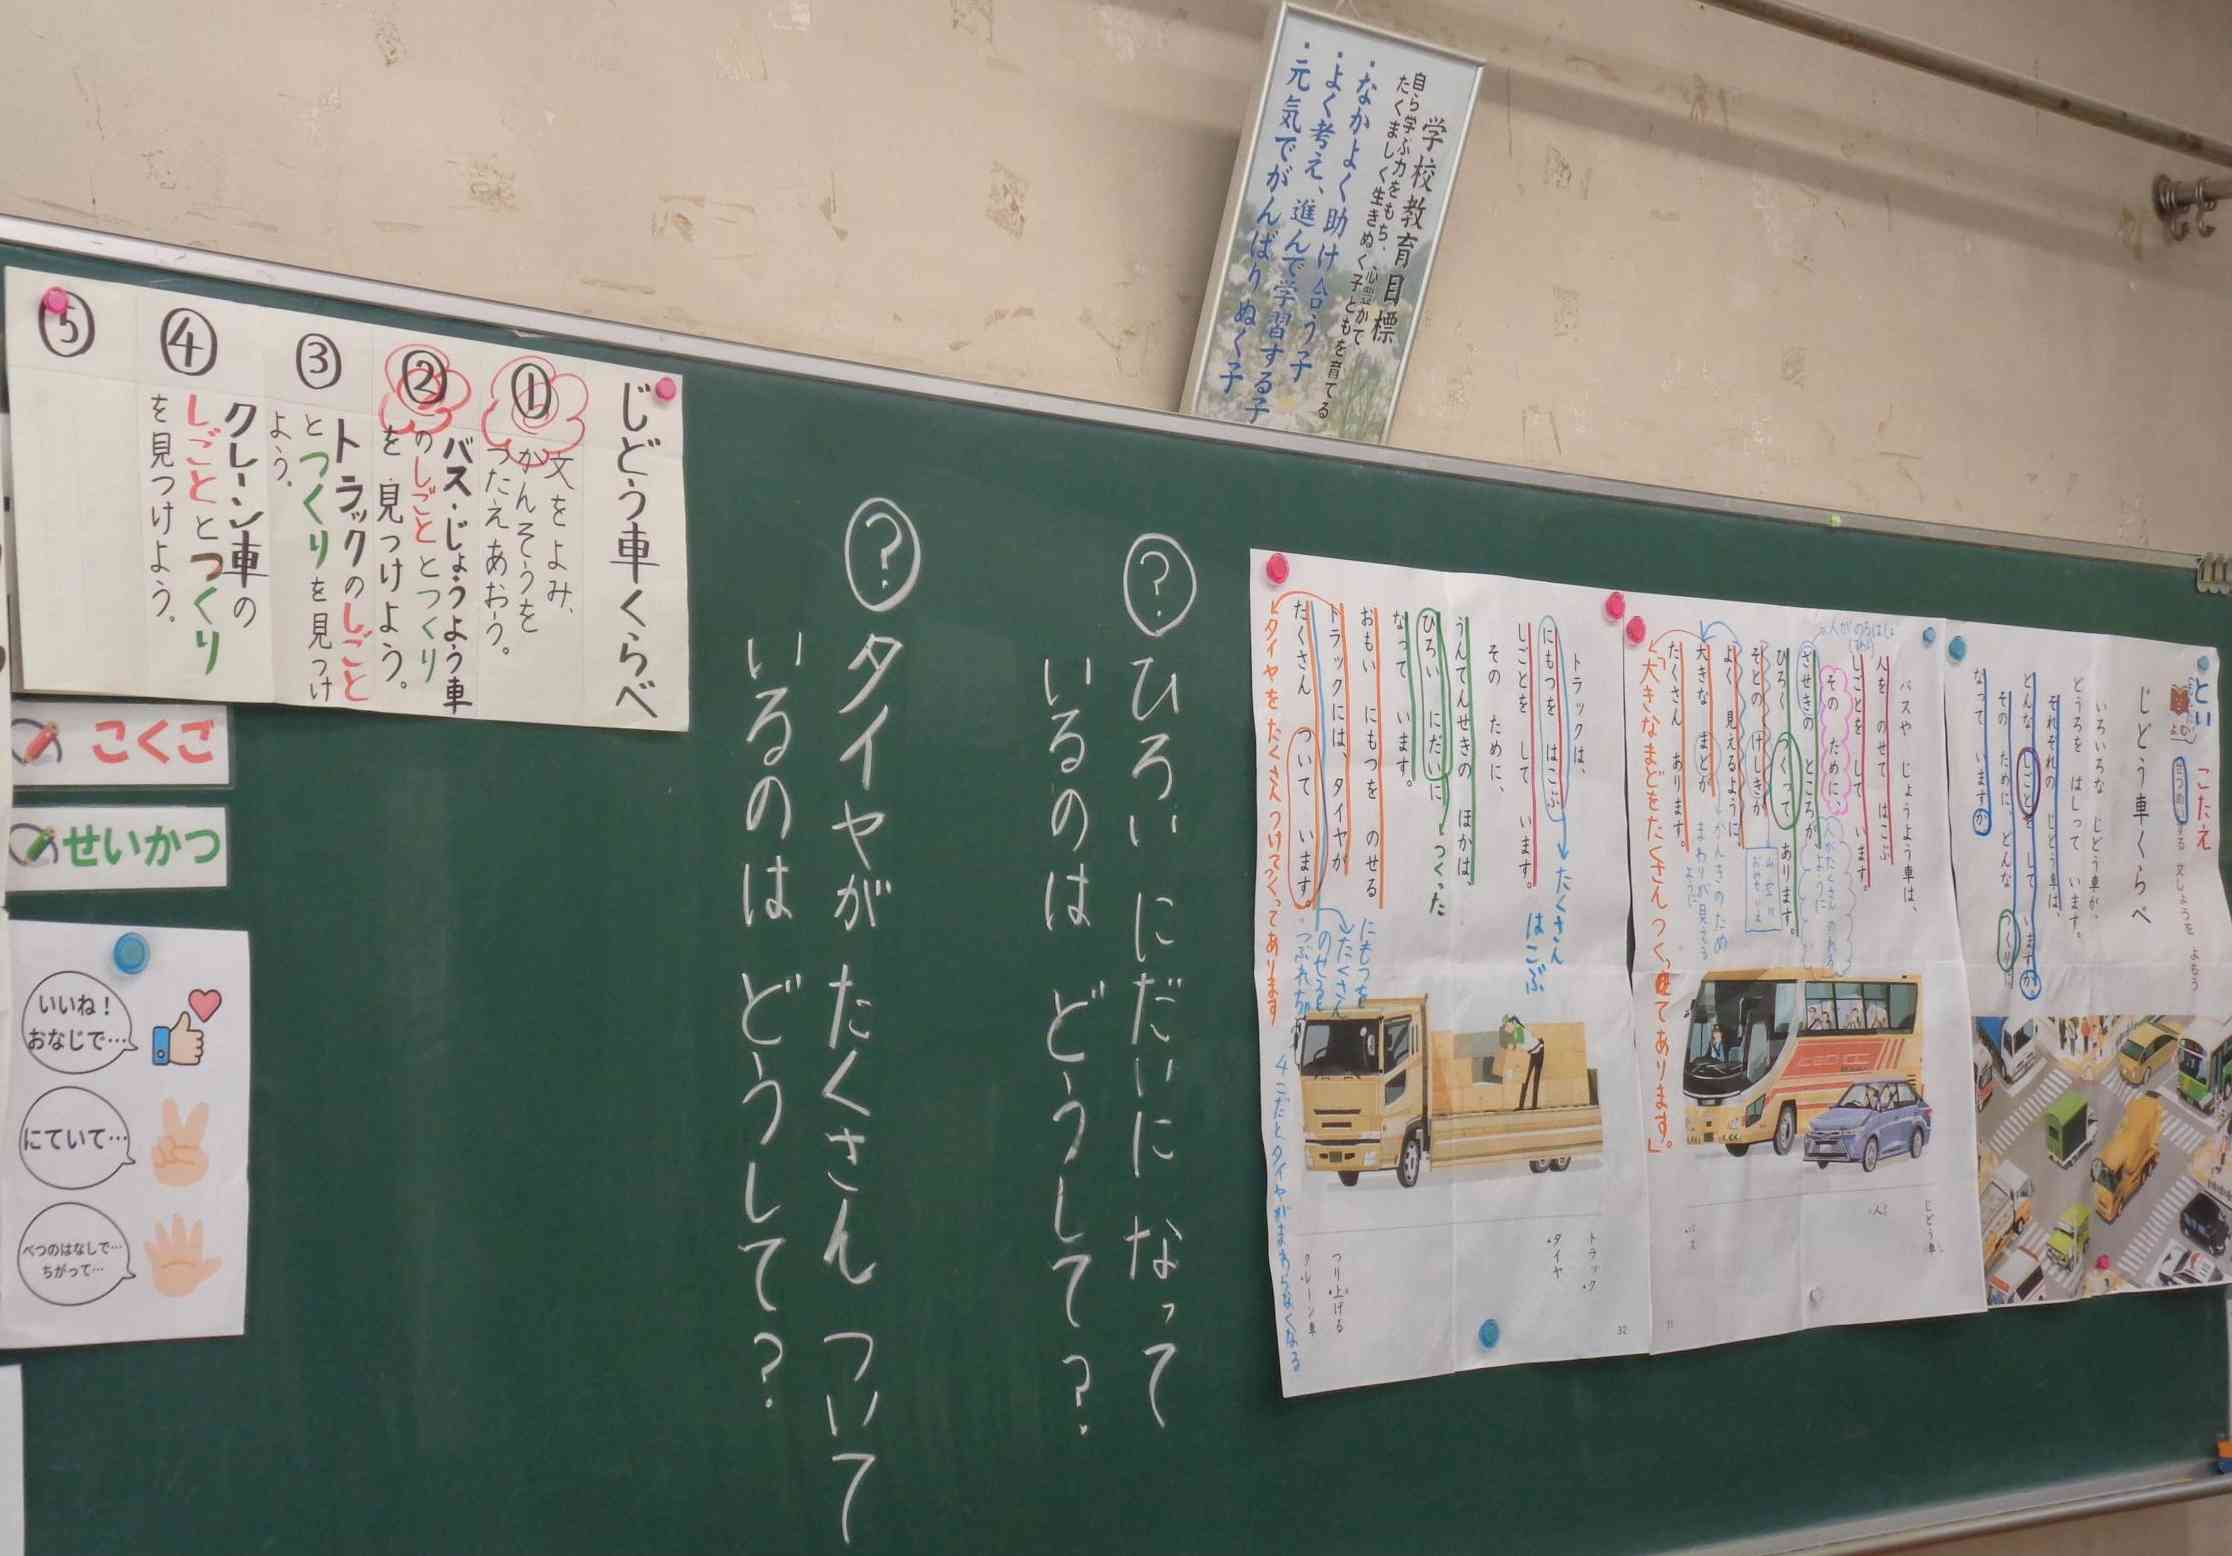 学校教育目標
自ら学ぶ力をもち、心豊かで
たくましく生きぬく子どもを育てる
・なかよく助け合う子
・よく考え、進んで学習する子
・元気でがんばりぬく子
とい こたえ
せつめいする 文しょうを よもう
じどう車くらべ
いろいろな じどう車が、
どうろを はしって います。
それぞれの じどう車は、
どんな しごとを して いますか。
その ために、どんな つくりに
なって いますか。
バスや じょうよう車は、
人を のせて はこぶ
しごとを して います。
その ために、
ざせきの ところが、
ひろく つくって あります。
そとの けしきが
よく 見えるように、
大きな まどが
たくさん あります。
「大きなまどをたくさん つくってあります。」
じどう車
人
バス
31
トラックは、
にもつを はこぶ
しごとを して います。
その ために、
うんてんせきの ほかは、
ひろい にだいに
なって います。
おもい にもつを のせる
トラックには、タイヤが
たくさん ついて います。
タイヤをたくさんつけてつくってあります
たくさん
はこぶ
つくった
にもつを
たくさん
のせると
4こだとタイヤがまわらなくなる
トラック
タイヤ
つり上げる
クレーン車
32
? ひろい にだいに なって
いるのは どうして?
? タイヤが たくさん ついて
いるのは どうして?
じどう車くらべ
① 文をよみ、
かんそうを
つたえあおう。
② バス・じょうよう車
のしごととつくり
を見つけよう。
③ トラックのしごと
とつくりを見つけ
よう。
④ クレーン車の
しごととつくり
を見つけよう。
⑤
こくご
せいかつ
いいね!
おなじで…
にていて…
べつのはなしで…
ちがって…